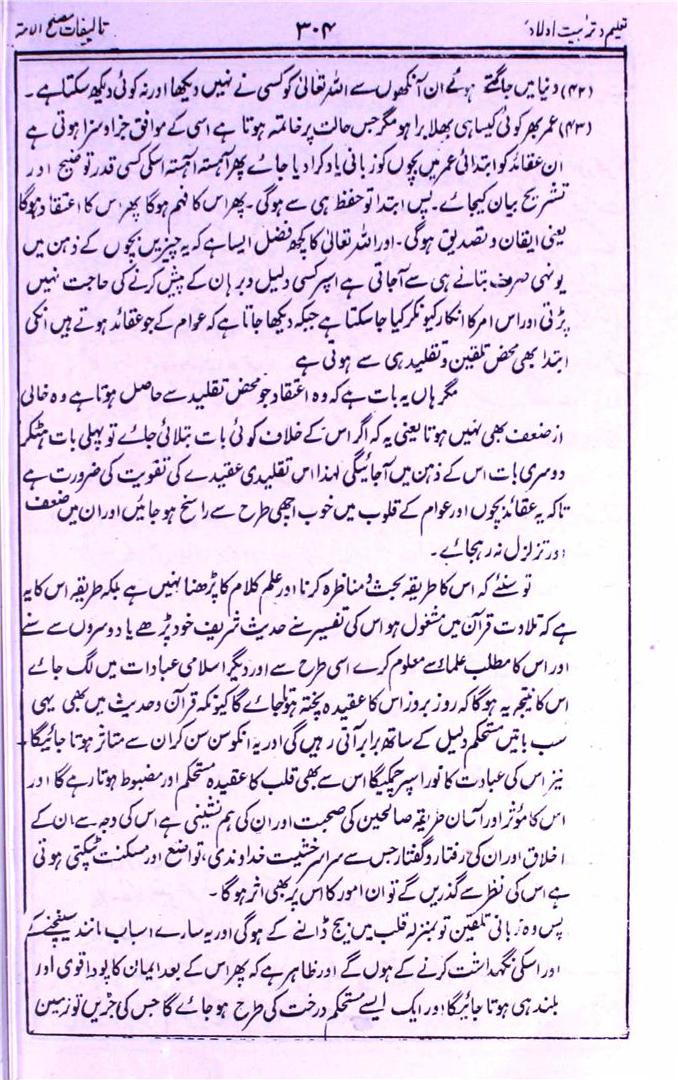 تعلیم و تربیت اولاد
۳۰۴
تالیفات مصلح الامۃ
(۴۲) دنیا میں جاگتے ہوئے ان آنکھوں سے اللہ تعالیٰ کو کسی نے نہیں دیکھا اور نہ کوئی دیکھ سکتا ہے۔
(۴۳) عمر بھر کوئی کیسا ہی بھلا برا ہو مگر جس حالت پر خاتمہ ہوتا ہے اسی کے موافق جزا و سزا ہوتی ہے
ان عقائد کو ابتدائی عمر میں بچوں کو زبانی یاد کرا دیا جائے پھر آہستہ آہستہ اسکی کسی قدر توضیح اور
تشریح بیان کیجائے۔ پس ابتدا تو حفظ ہی سے ہوگی۔ پھر اس کا فہم ہوگا پھر اس کا اعتقاد ہوگا
یعنی ایقان و تصدیق ہوگی۔ اور اللہ تعالیٰ کا کچھ فضل ایسا ہے کہ یہ چیزیں بچوں کے ذہن میں
یونہی صرف بتانے ہی سے آجاتی ہے اسپر کسی دلیل و برہان کے پیش کرنے کی حاجت نہیں
پڑتی اور اس امر کا انکار کیونکر کیا جا سکتا ہے جبکہ دیکھا جاتا ہے کہ عوام کے جو عقائد ہوتے ہیں انکی
ابتدا بھی محض تلقین و تقلید ہی سے ہوتی ہے
مگر ہاں یہ بات ہے کہ وہ اعتقاد جو محض تقلید سے حاصل ہوتا ہے وہ خالی
از ضعف بھی نہیں ہوتا یعنی یہ کہ اگر اس کے خلاف کوئی بات بتلائی جائے تو پہلی بات ہٹکر
دوسری بات اس کے ذہن میں آجائیگی لہذا اس تقلیدی عقیدے کی تقویت کی ضرورت ہے
تاکہ یہ عقائد بچوں اور عوام کے قلوب میں خوب اچھی طرح سے راسخ ہو جائیں اور ان میں ضعف
اور تزلزل نہ رہجائے۔
تو سنئے کہ اس کا طریقہ بحث و مناظرہ کرنا اور علم کلام کا پڑھنا نہیں ہے بلکہ طریقہ اس کا یہ
ہے کہ تلاوت قرآن میں مشغول ہو اس کی تفسیر سنے حدیث شریف خود پڑھے یا دوسروں سے سنے
اور اس کا مطلب علماء سے معلوم کرے اسی طرح سے اور دیگر اسلامی عبادات میں لگ جائے
اس کا نتیجہ یہ ہوگا کہ روز بروز اس کا عقیدہ پختہ ہوتا جائے گا کیونکہ قرآن و حدیث میں بھی یہی
سب باتیں مستحکم دلیل کے ساتھ برابر آتی رہیں گی اور یہ انکو سن سن کر ان سے متاثر ہوتا جائیگا۔
نیز اس کی عبادت کا نور اسپر چمکیگا اس سے بھی قلب کا عقیدہ مستحکم اور مضبوط ہوتا رہے گا اور
اس کا مؤثر اور آسان طریقہ صالحین کی صحبت اور ان کی ہم نشینی ہے اس کی وجہ سے ان کے
اخلاق اور ان کی رفتار و گفتار جس سے سراسر خشیت خداوندی، تواضع اور مسکنت ٹپکتی ہوتی
ہے اس کی نظر سے گذریں گے تو ان امور کا اس پر بھی اثر ہوگا۔
پس وہ زبانی تلقین تو بمنزلہ قلب میں بیج ڈالنے کے ہوگی اور یہ سارے اسباب مانند سینچنے کے
اور اسکی نگہداشت کرنے کے ہوں گے اور ظاہر ہے کہ پھر اس کے بعد ایمان کا پودا قوی اور
بلند ہی ہوتا جائیگا اور ایک ایسے مستحکم درخت کی طرح ہو جائے گا جس کی جڑیں تو زمین